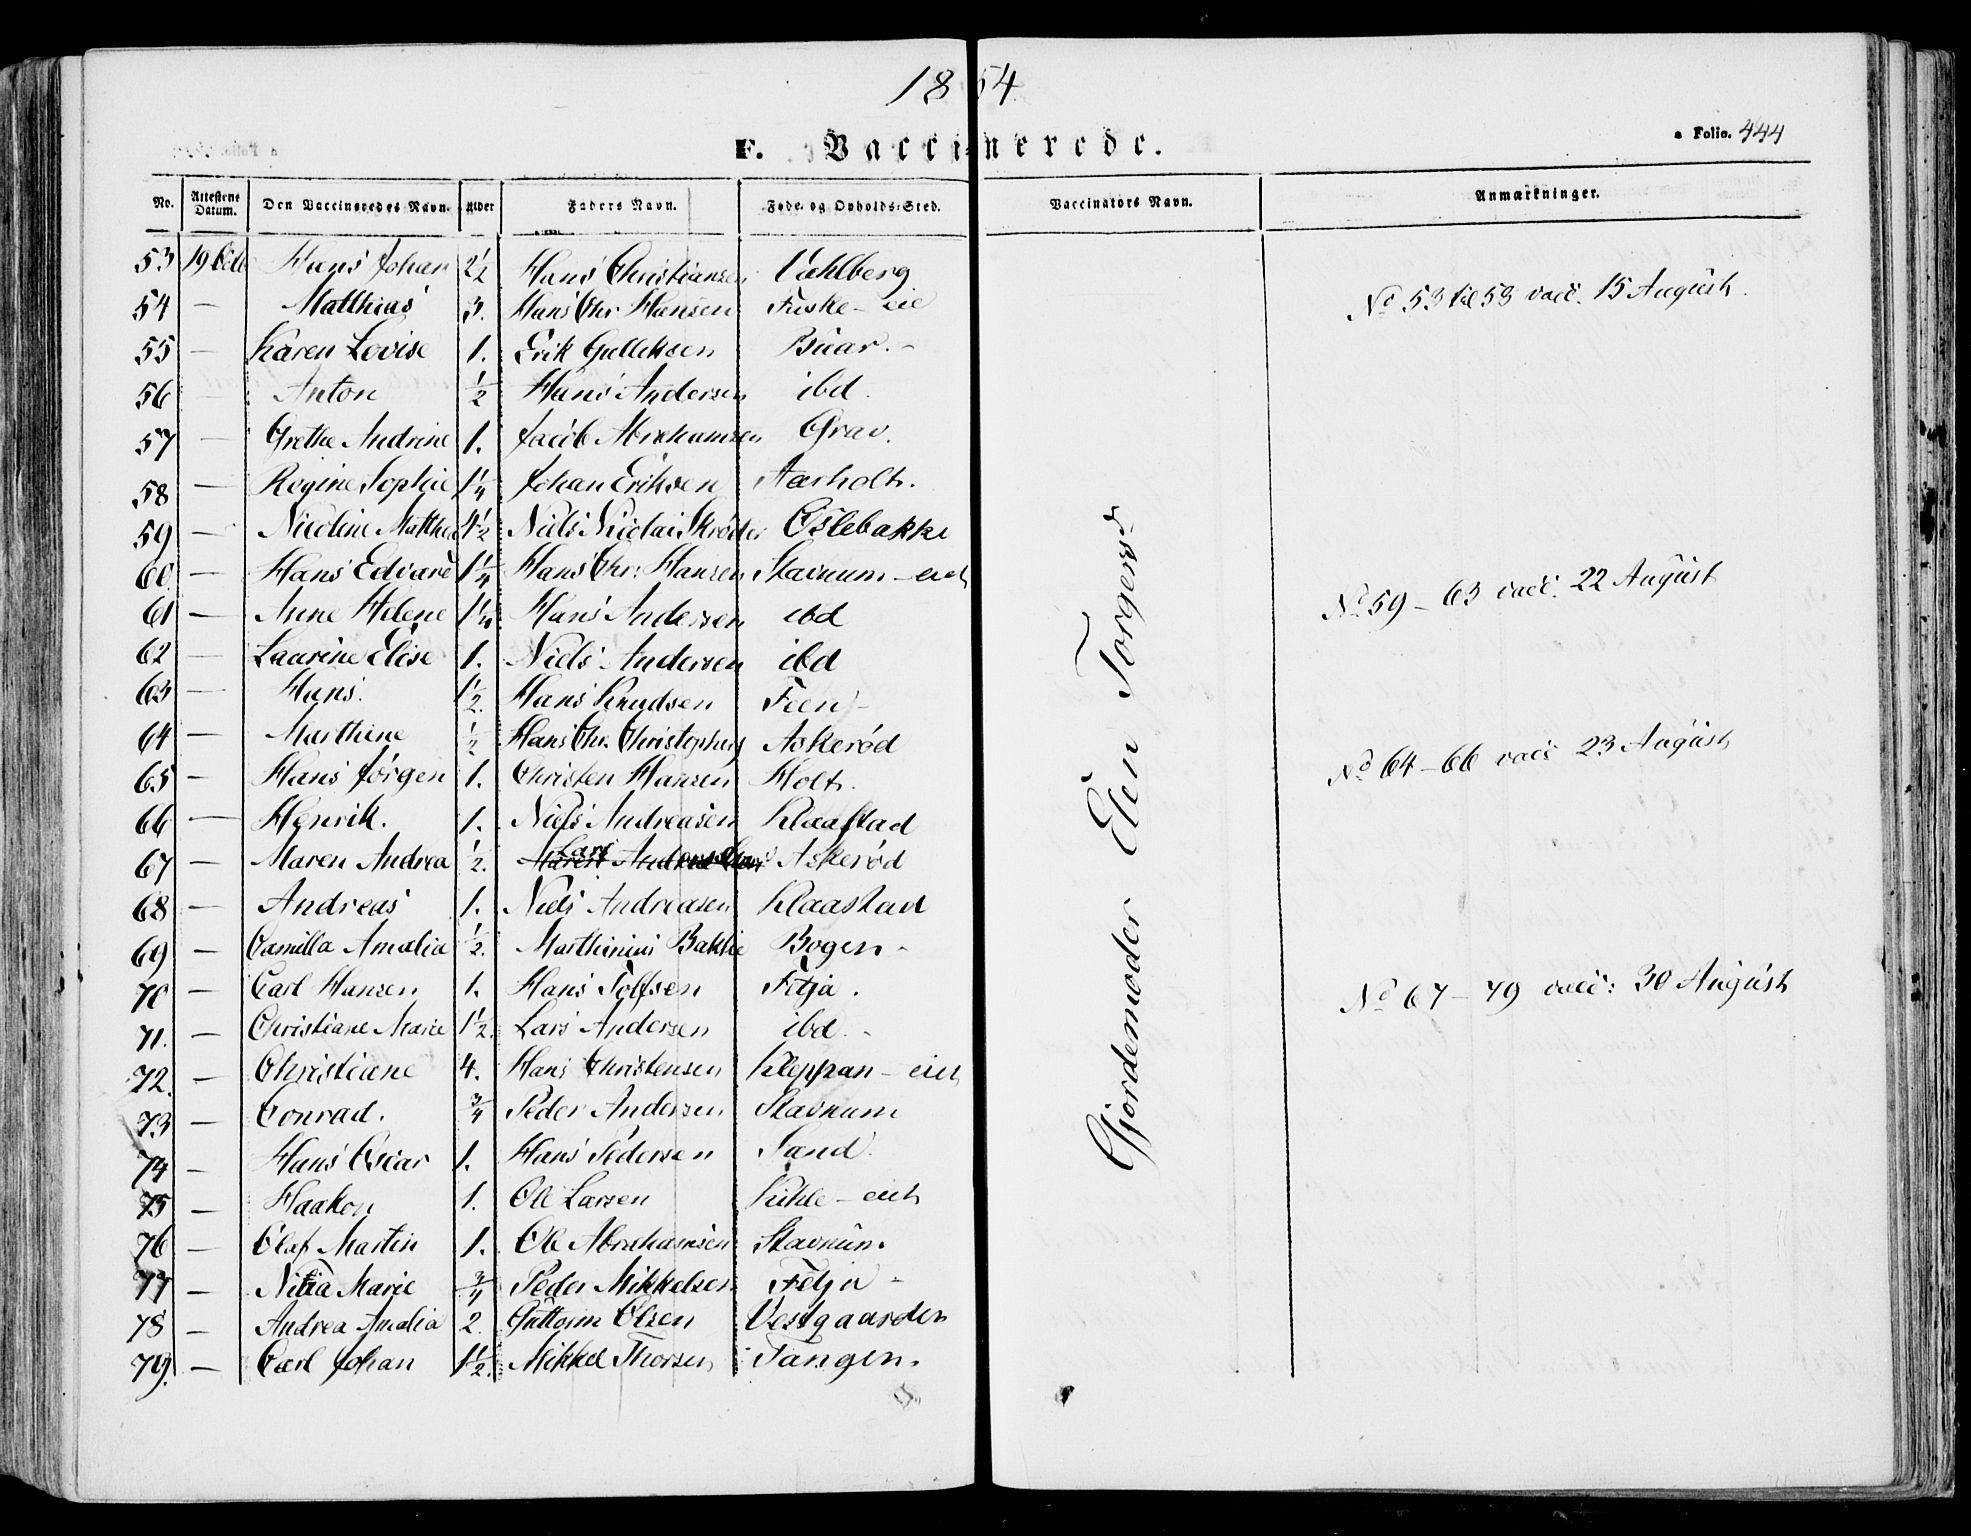 1854
F. Vaccinerede.
a Folio. 444
No. Attestens Datum. Den Vaccineredes Navn. Alder Faders Navn. Føde- og Opholds-Sted. Vaccinators Navn. Anmærkninger.
53 19 Hans Johan 2½ Hans Christiansen Vahlberg
No 53 til 58 vacc. 15 August.
54 — Matthias 3. Hans Chr. Hansen Fuske-eie
55 — Karen Lovise 1. Erik Gulliksen Buar.-
56 — Anton ½ Hans Andersen ibd.
57 — Grethe Andrine 1. Jacob Abrahamsen Grav.
58 — Regine Sophie 1¼ Johan Eriksen Aarholt.
59 — Nicoline Mathea Niels Nicolai Skrøder Oslebakke
60 — Hans Edvard 1¼ Hans Chr: Hansen Stavnum-eiet
No 59 - 63 vacc. 22 August
61 — Anne Helene Hans Andersen ibd
62 — Laurine Elise 1. Niels Andersen ibd
63 — Hans. 1½. Hans Knudsen Feen-
64 — Marthine ½ Hans Chr. Askerød
No 64 - 66 vacc 23 August
65 — Hans Jørgen 1. Christen Hansen Holt.
66 — Henrik. 1. Niels Andreasen Klaastad
67 — Maren Andrea ½. Lars Askerød
68 — Andreas 1. Niels Andreasen Klaastad
69 — Camilla Amalia ½. Marthinius Bakke Bogen-
70 — Carl Hansen 1. Hans Tolfsen Fetja.
No 67 - 79 vacc: 30 August
71. — Christiane Marie 1½. Lars Andersen ibd.-
72. — Christiane 4. Hans Christensen Kleppan-eiet
73 — Conrad. ¾ Peder Andersen Stavnum
74 — Hans Oscar 1. Hans Pedersen Sand.
75 — Haakon 1. Ole Larsen
76 — Olaf Martin 1. Ole Abrahamsen Stavnum.
77 — Marie ¾ Peder Mikkelsen Fetja-
78 — Andrea Amalia 2. Guttorm Olsen Vestgaarden
79. — Carl Johan 1½. Mikkel Thorsen Tangen.
Gjordemoder Elen Torgersd